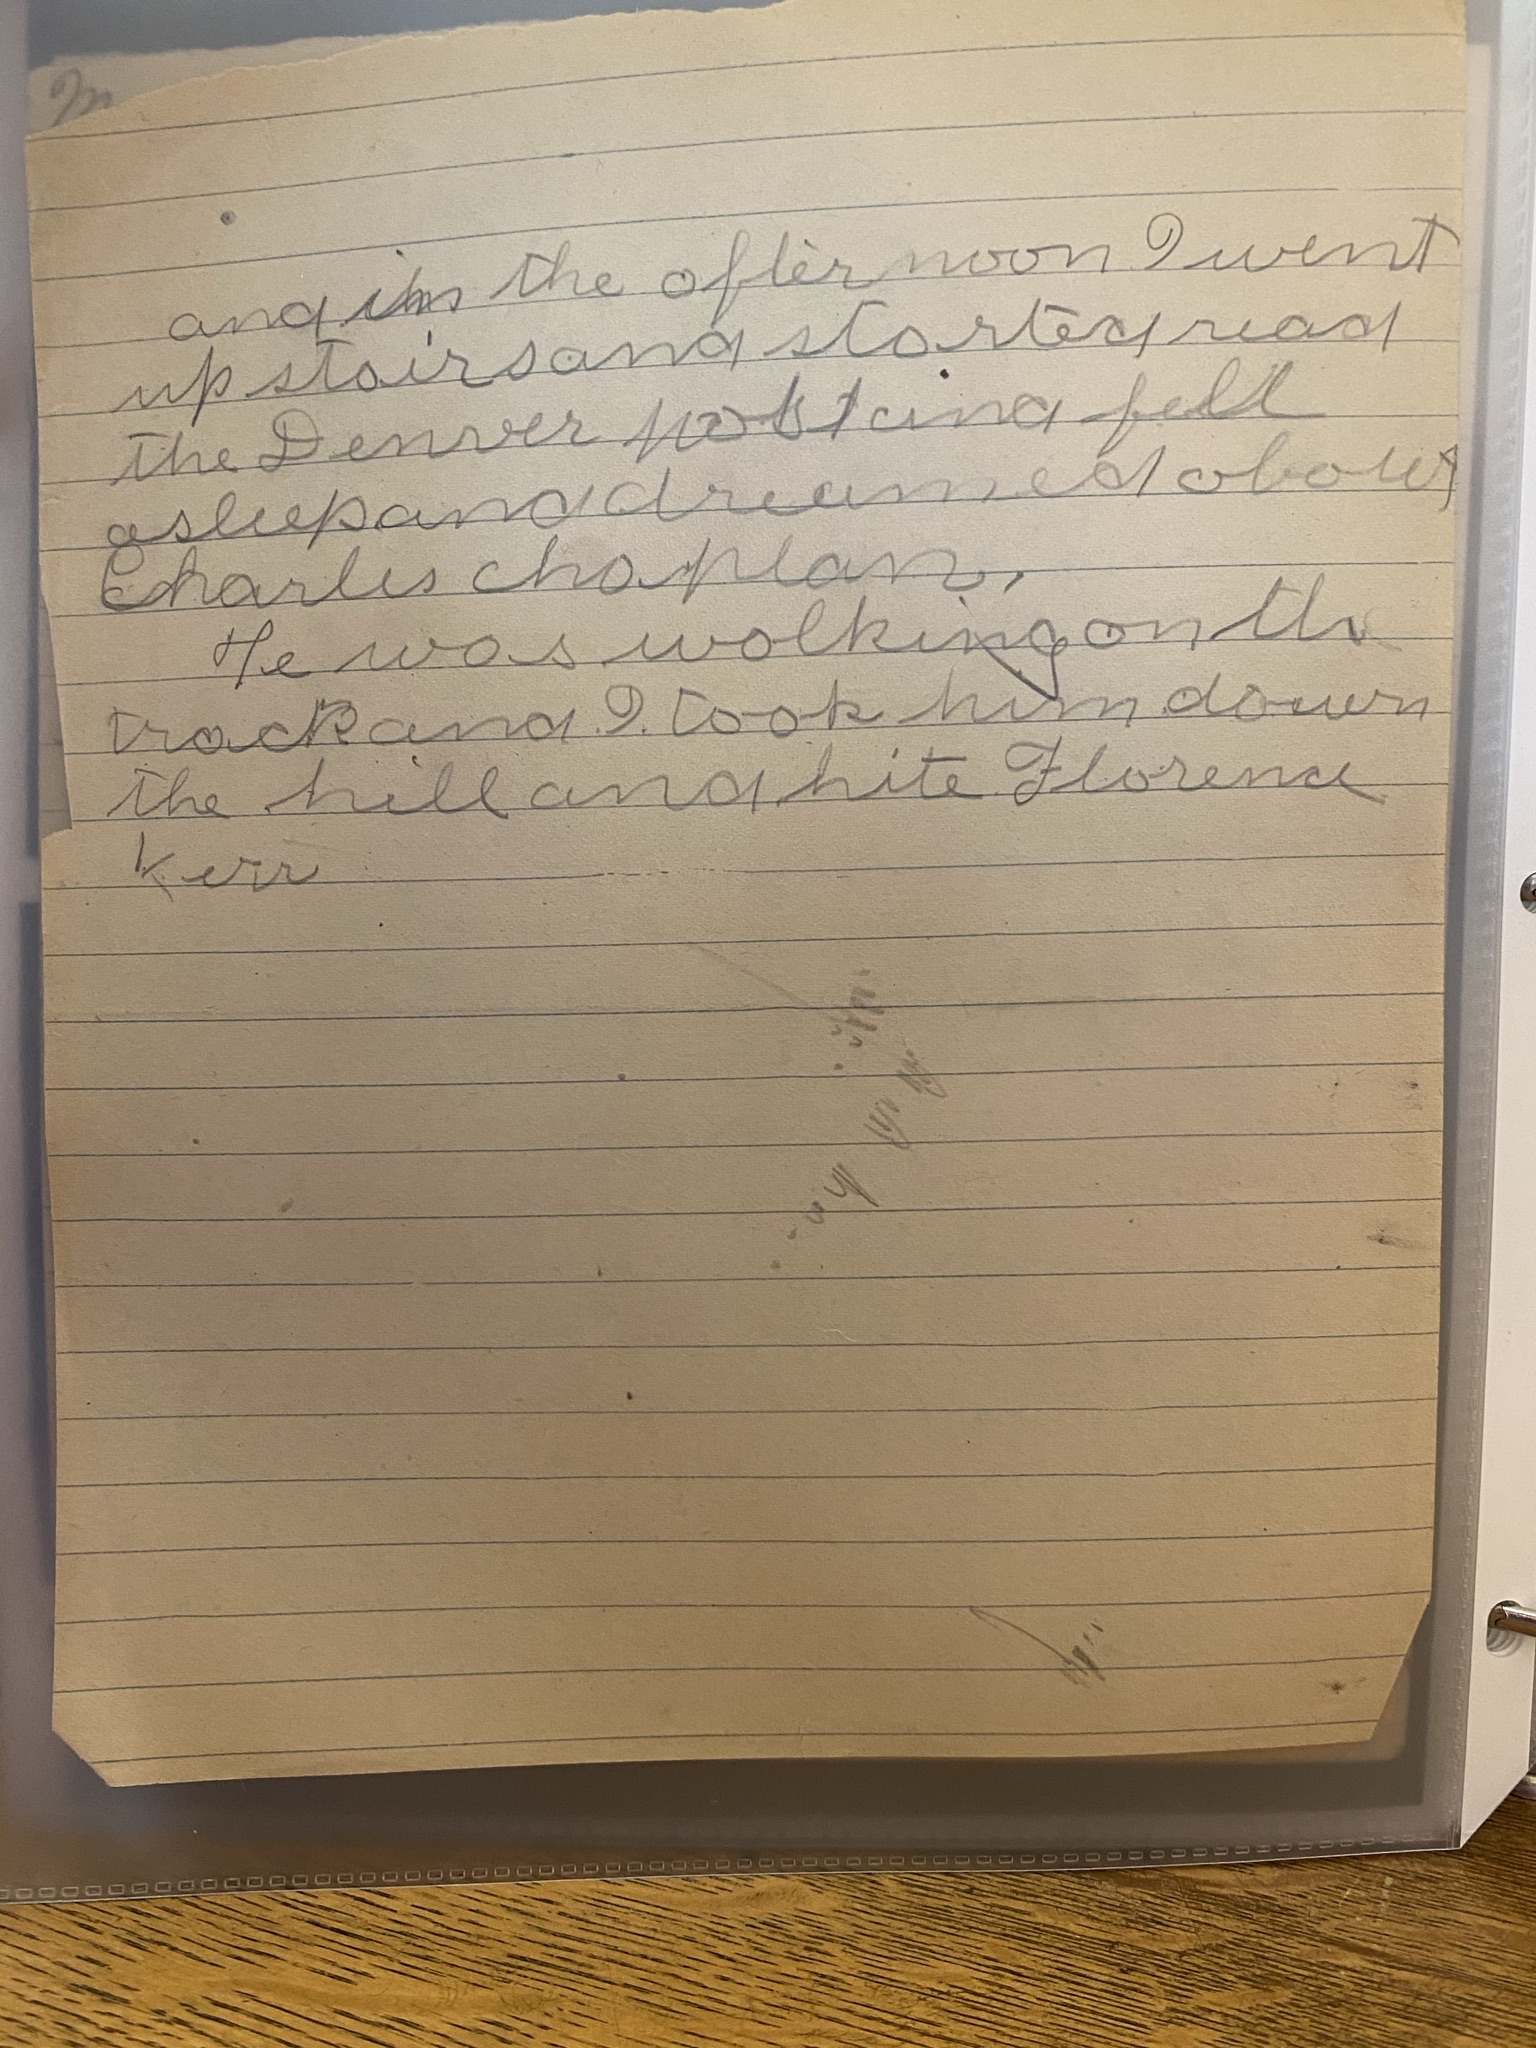 and in the afternoon I went
up stairs and started read
the Denver post and fell
asleep and dreamed about
Charles chaplan.
He was walking on the
track and I. took him down
the hill and hite Florence
Kerr